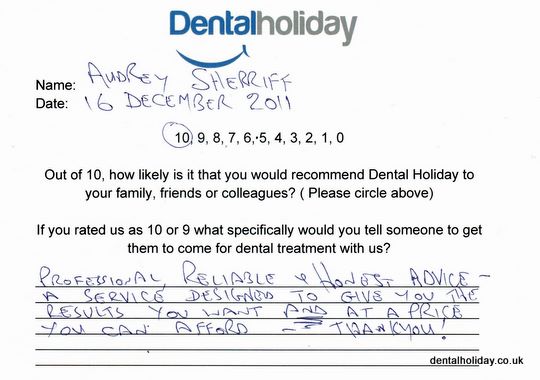 Dentalholiday
Name: AUDREY SHERRIFF
Date: 16 DECEMBER 2011
10, 9, 8, 7, 6, 5, 4, 3, 2, 1, 0
Out of 10, how likely is it that you would recommend Dental Holiday to
your family, friends or colleagues? ( Please circle above)
If you rated us as 10 or 9 what specifically would you tell someone to get
them to come for dental treatment with us?
PROFESSIONAL, RELIABLE & HONEST ADVICE -
A SERVICE DESIGNED TO GIVE YOU THE
RESULTS YOU WANT AND AT A PRICE
YOU CAN AFFORD - THANKYOU!
dentalholiday.co.uk